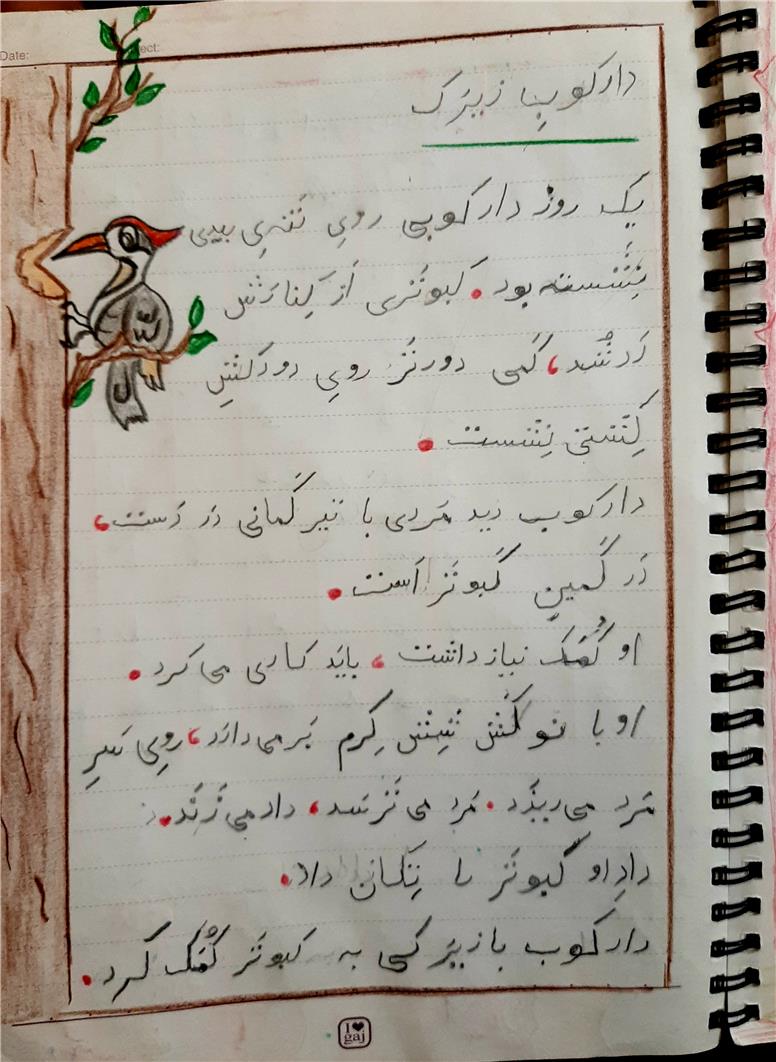 Date:
ect:
دارکوبِ زیرَک
یِک روز دارکوبی رویِ تَنه‌یِ بیدی
نِشَسته بود. کَبوتَری اَز کِنارَش
رَد شُد، کَمی دورتَر رویِ دودکِشِ
کِشتی نِشَست.
دارکوب دید مَردی با تیر کَمانی دَر دَست،
دَر کَمینِ کَبوتَر اَست.
او کُمَک نیاز داشت، بایَد کاری می کرد.
او با نوکَش شِش کِرم بَر می دارَد، رویِ سَرِ
مَرد می ریزَد. مَرد می تَرسَد، داد می زَنَد.
دادِ او کَبوتَر را تِکان داد.
دارکوب با زیرَکی به کَبوتَر کُمَک کَرد.
I ♥
gaj